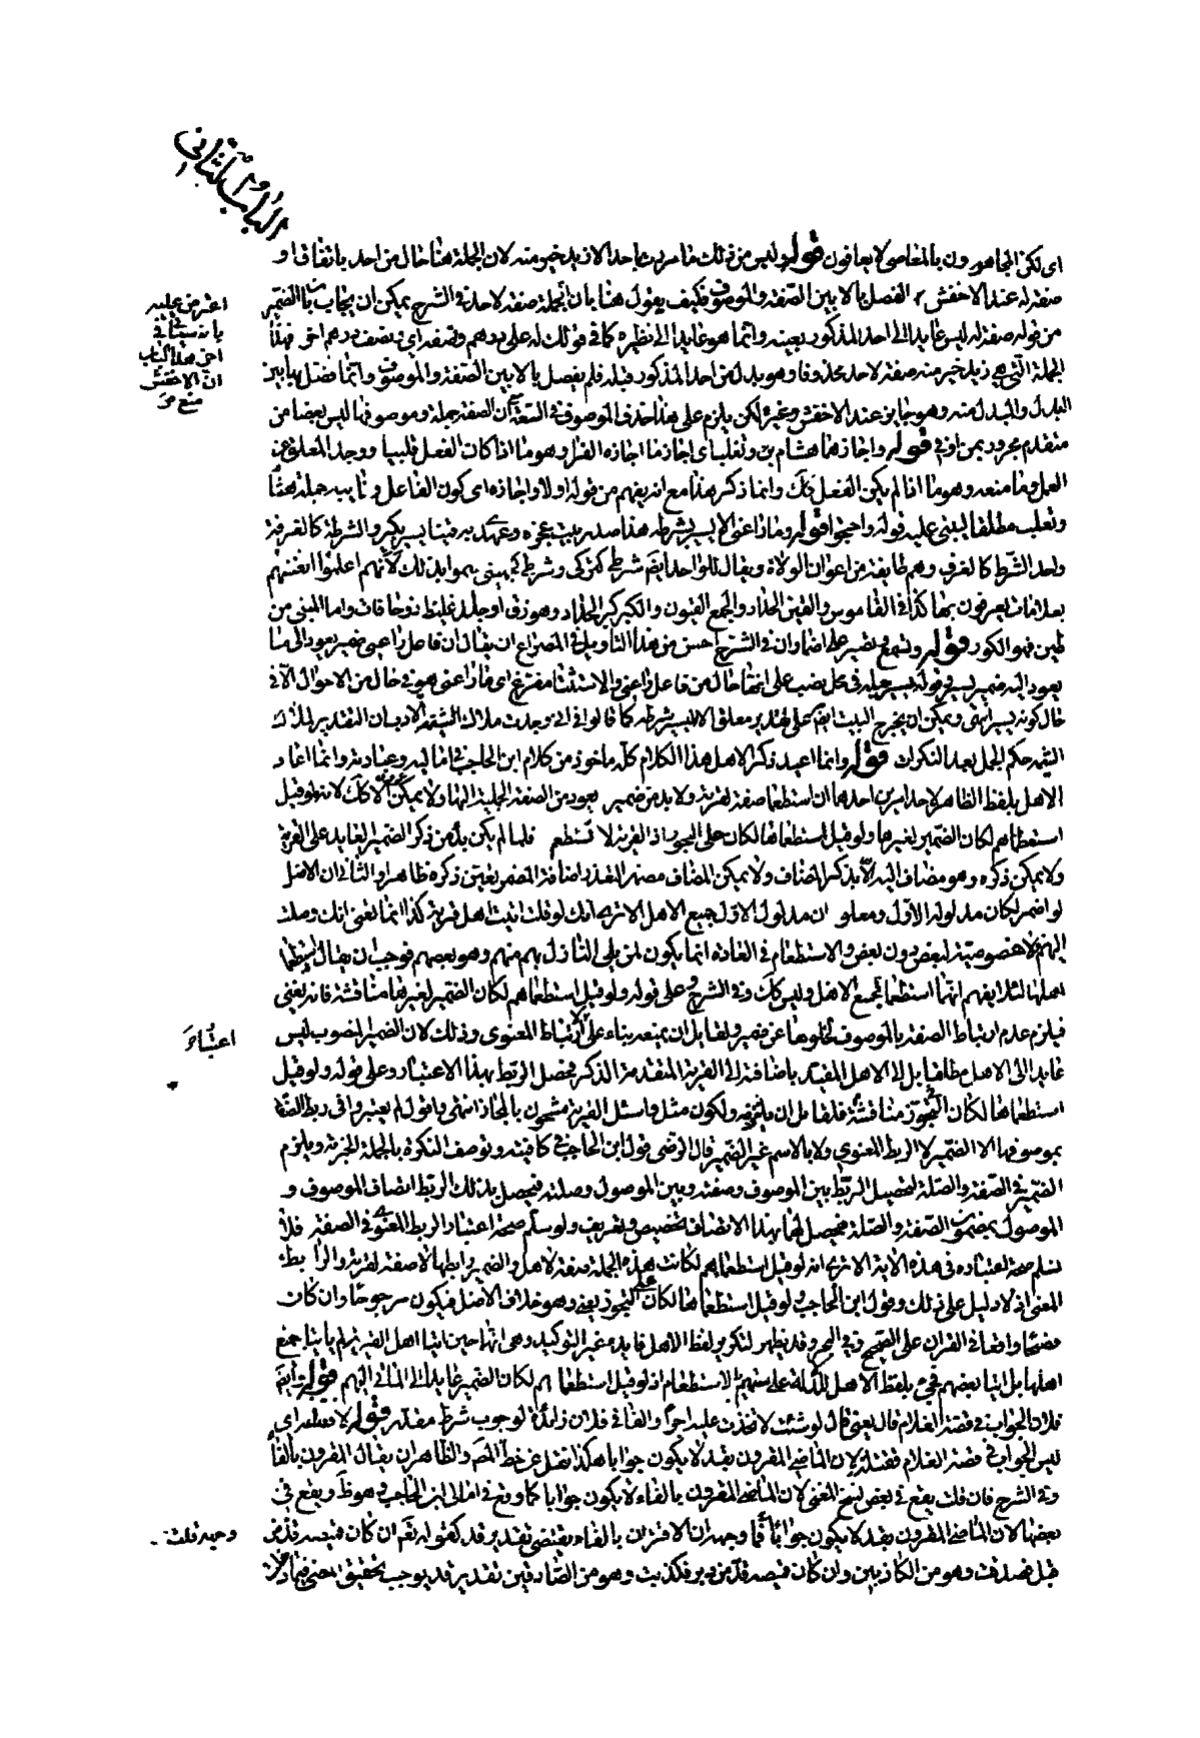 الباب الثاني
اى لكن المجاهرون بالمعاصى لا يعافون قوله وليس من ذلك ما مررت باحد الا زيد خير منه لان الجملة هنا حال من احد باتفاق او
صفة له عند الاخفش الفصل بالا بين الصفة والموصوف فكيف يقول هنا بان الجملة صفة لاحد فى الشرح يمكن ان يجاب بان الضمير
من قوله صفة له ليس عايدا الى احد المذكور بعينه وانما هو عايد الى نظيره كما فى قولك له على درهم ونصفه اى ونصف درهم اخر فهذا
الجملة التى هى زيد خير منه صفة لاحد محذوفا وهو بدل من احد المذكور قبله فلم يفصل بالا بين الصفة والموصوف وانما فصل بها بين
البدل والمبدل منه وهو جايز عند الاخفش وغيره لكن يلزم على هذا حذف الموصوف فى السعة مع ان الصفة جملة وموصوفها ليس بعضا من
متقدم مجرور بمن او فى قوله واجازهما هشام وثعلب اى اجازا ما اجازه الفراء وهو ما اذا كان الفعل قلبيا ووجد المعلق عن
العمل وما منعه وهو ما اذا لم يكن الفعل كذلك وانما ذكر هذا مع انه يفهم من قوله اولا واجازه اى كون الفاعل ونايبه جملة هشام
وثعلب مطلقا ليبنى عليه قوله واحتجوا قوله وما راعنى الا يسير بشرطة هذا صدر بيت عجزه وعهدى به قينا يسير بكير والشرطة كالغرفة
واحد الشرط كالغرف وهم طايفة من اعوان الولاة ويقال للواحد ايضا شرطى كتركى وشرطى كجهنى سموا بذلك لانهم اعلموا انفسهم
بعلامات يعرفون بها كذا فى القاموس والقين الحداد والجمع القيون والكير كير الحداد وهو زق او جلد غليظ ذو حافات واما المبنى من
طين فهو الكور قوله وتسمع يقدر على اضمار ان فى الشرح احسن من هذا التاويل فى المصراع ان يقال ان فاعل راعنى ضمير يعود الى ما
يعود اليه ضمير يسير وقوله يسير جملة فى محل نصب على انها حال من فاعل راعنى والاستثناء مفرغ اى ما راعنى هو فى حال من الاحوال الا فى
حال كونه يسير انتهى ويمكن ان يخرج البيت ايضا على تقدير معلق
الشبيه حكم الجمل بعد النكرات قوله وانما اعيد ذكر الاهل هذا الكلام كله ماخوذ من كلام ابن الحاجب فى اماليه وعبارته وانما اعاد
الاهل بلفظ الظاهر لاحد امرين احدهما ان استطعما صفة لقرية ولا بد من ضمير يعود من الصفة الجملية اليها ولا يمكن الا كذلك لانه لو قيل
استطعماهم لكان الضمير لغيرها ولو قيل استطعماها لكان على التجوز اذ القرية لا تستطعم فلما لم يكن بد من ذكر الضمير العايد على القرية
ولا يمكن ذكره وهو مضاف اليه الا بذكر المضاف ولا يمكن المضاف مضمرا لتعذر اضافة المضمر تعين ذكره ظاهرا والثانى ان الاهل
لو اضمر لكان مدلوله الاول ومعلوم ان مدلول الاول جميع الاهل الا ترى انك لو قلت اتيت اهل قرية كذا انما تعنى انك وصلت
اليهم لا خصوصية لبعض دون بعض والاستطعام فى العادة انما يكون لمن يلى النازل بهم منهم وهو بعضهم فوجب ان يقال استطعما
اهلها لئلا يفهم انهما استطعما جميع الاهل وليس كذلك وفى الشرح وعلى قوله ولو قيل استطعماهم لكان الضمير لغيرها مناقشة فانه يعنى
فيلزم عدم ارتباط الصفة بالموصوف لخلوها عن ضمير ولقايل ان يمنعه بناء على الارتباط المعنوى وذلك لان الضمير المنصوب ليس
عايدا الى الاهل مطلقا بل الى الاهل المقيد باضافته الى القرية المتقدمة الذكر فحصل الربط بهذا الاعتبار وعلى قوله ولو قيل
استطعماها لكان التجوز مناقشة فلقايل ان يلتزمه ولكون مثل واسئل القرية مشحون بالمجاز انتهى واقول لم يعتبروا فى ربط الصفة
بموصوفها الا الضمير لا الربط المعنوى ولا بالاسم غير الضمير قال الرضى قول ابن الحاجب فى كافيته وتوصف النكرة بالجملة الخبرية ويلزم
الضمير فى الصفة والصلة لتحصيل الربط بين الموصوف وصفته وبين الموصول وصلته فيحصل بذلك الربط اتصاف الموصوف و
الموصول بمضمون الصفة والصلة فيحصل لهما بهذا الاتصاف تخصيص وتعريف ولو سلم صحة اعتبار الربط المعنوى فى الصفة فلا
نسلم صحة اعتباره فى هذه الاية الا ترى انه لو قيل استطعماهم لكانت هذه الجملة صفة لاهل والضمير رابطها لا صفة لقرية والرابط
المعنى اذ لا دليل على ذلك وقول ابن الحاجب ولو قيل استطعماها لكان على التجوز يعنى وهو خلاف الاصل فيكون مرجوحا وان كان
فصيحا واقعا فى القران على الصحيح وفى البحر وقد يظهر لتكرير لفظ الاهل فايدة غير التوكيد وهى انهما حين اتيا اهل القرية لم ياتيا جميع
اهلها بل اتيا بعضهم فجىء بلفظ الاهل للدلالة على الاستطعام اذ لو قيل استطعماهم لكان الضمير عايدا الى الماتى اليهم قوله ايضا
فلان الجواب فى قصة الغلام قال يعنى قال لو شئت لاتخذت عليه اجرا والفا فى فلان زائدة لوجوب شرط مقدر قوله لا فقتله اى
ليس الجواب فى قصة الغلام فقتله لان الماضى المقرون بقد لا يكون جوابا هكذا نقل عن خط المص والظاهر ان يقال المقرون بالفا
وفى الشرح فان قلت يقع فى بعض نسخ المغنى لان الماضى المقرون بالفاء لا يكون جوابا كما وقع فى امالى ابن الحاجب وهو ظ ويقع فى
بعضها لان الماضى المقرون بقد لا يكون جوابا فما وجهه ان الاقتران بالفاء يقتضى تقدير قد كقوله تعم ان كان قميصه قد من
قبل فصدقت وهو من الكاذبين وان كان قميصه قد من دبر فكذبت وهو من الصادقين تقدير قد يوجب تحقيق المضى
اعترض عليه
بانه سياتى فى
اخر هذا الكتاب
ان الاخفش
منع مر
اعتبار
وحيد قلت